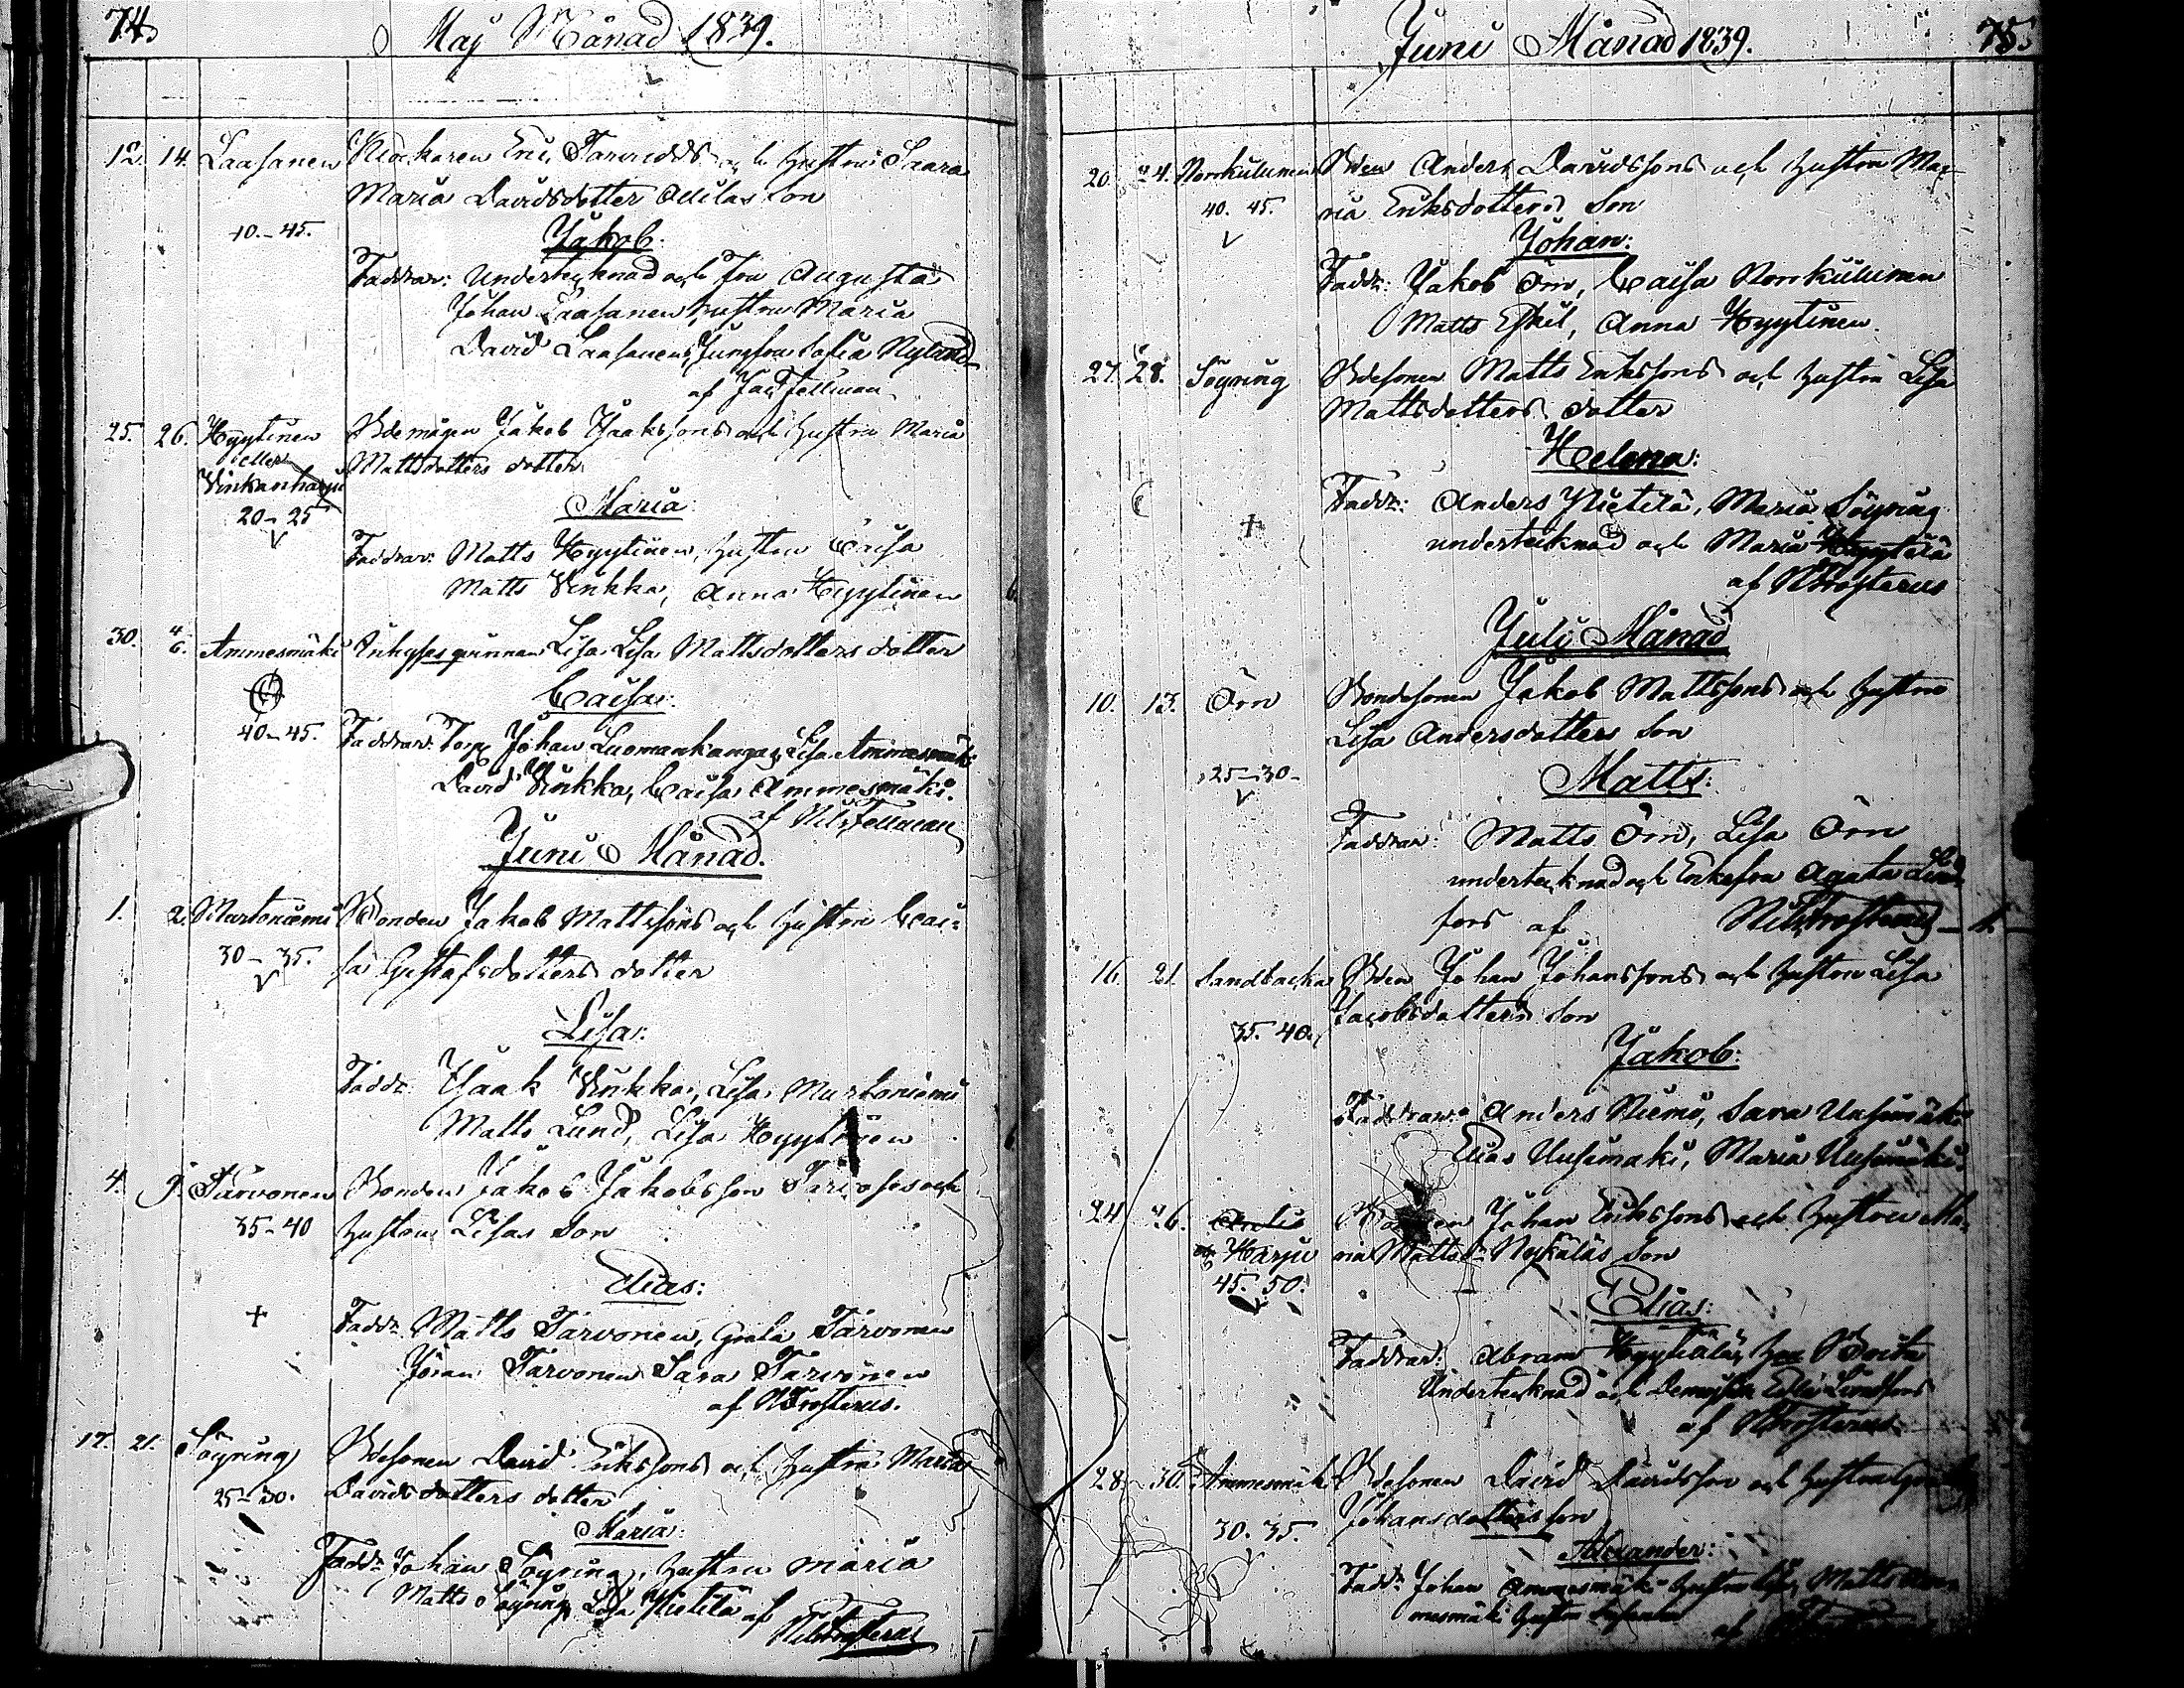 74.
Maj Månad 1839.
12. 14. Laasanen Klockaren Eric Tarvudds och hustru Saara
Maria Davidsdotter Attilas son
40.-45. Jakob:
Faddrar: Undertecknad och Fru Augusta
Johan Laasanen, hustru Maria
David Laasanen, Jungfru Sofia Nylund
af Jac. Fellman
25. 26. Hyytinen Bdemågen Jakob Isaksson och hustru Maria
eller Mattsdotters dotter
Vinkanharju
20-25 Maria
Faddrar: Matts Hyytinen, hustru Caisa
Matts Vinkka, Anna Hyytinen
30. 4/6. Ammesmäki Inhyses qvinnan Lisa Lisa Mattsdotters dotter
Caisa:
40-45. Faddrar: Torp. Johan Luomankangas, Lisa Ammesmäki
David Vinkka, Caisa Ammesmäki.
af Nils Fellman
Juni Månad.
1. 2. Martoniemi Bonden Jakob Mattssons och hustru Cai-
30-35. sa Gustafsdotters dotter
Lisa:
Fadd: Isaak Vinkka, Lisa Martoniemi
Matts Lund, Lisa Hyytinen
4. 9. Tarvonen Bonden Jakob Jakobsson och
35-40 hustru Lisas son
Elias:
+ Fadd: Matts Tarvonen, Greta Tarvonen
Göran Tarvonen Sara Tarvonen
af N Frosterus.
17. 21. Söyring Bdesonen David Erikssons och hustru Maria
25-30. Davids dotters dotter
Maria:
Fadd: Johan Söyring, hustru Maria
Matts Söyring Lisa Yletilä af
Nils Frosterus
Juni Månad 1839. 75.
20. 24. Norrkulunen Bden Anders Davidssons och hustru Ma-
40. 45. ria Eriksdotters son
Johan:
Fadd: Jakob Örn, Caisa Norrkulunen
Matts Eskil, Anna Hyytinen.
27. 28. Söyring Bdesonen Matts Erikssons och hustru Lisa
Mattsdotters dotter
Helena:
Fadd: Anders Yletilä, Maria Söyring
+ undertecknad och Maria
af N Frosterus
Juli Månad
10. 13. Örn Bondesonen Jakob Mattssons och hustru
Lisa Andersdotters son
25-30- Matts:
Faddrar: Matts Örn, Lisa Örn
undertecknad och Enkefru Agata Lind-
fors af Nils Frosterus
16. 21. Sandbacka Bden Johan Johanssons och hustru Lisa
Jacobsdotters son
35. 40. Jakob:
Faddrar: Anders Niemi, Sara Uusimäki
Elias Uusimäki, Maria Uusimäki.
24 26. Bonden Johan Erikssons och hustru Ma-
Harju ria Mattsdr Nykäläs son
45. 50. Elias:
Faddrar: Abram Hyytiälä, Brita
Undertecknad och Lindfors
af N Frosterus
28. 30. Ammesmäki Bdesonen David Davidsson och hustru
30. 35. Johansdotters son
Alexander:
Fadd: Johan Ammesmäki hustru Lisa, Matts Am-
mesmäki hustru
af